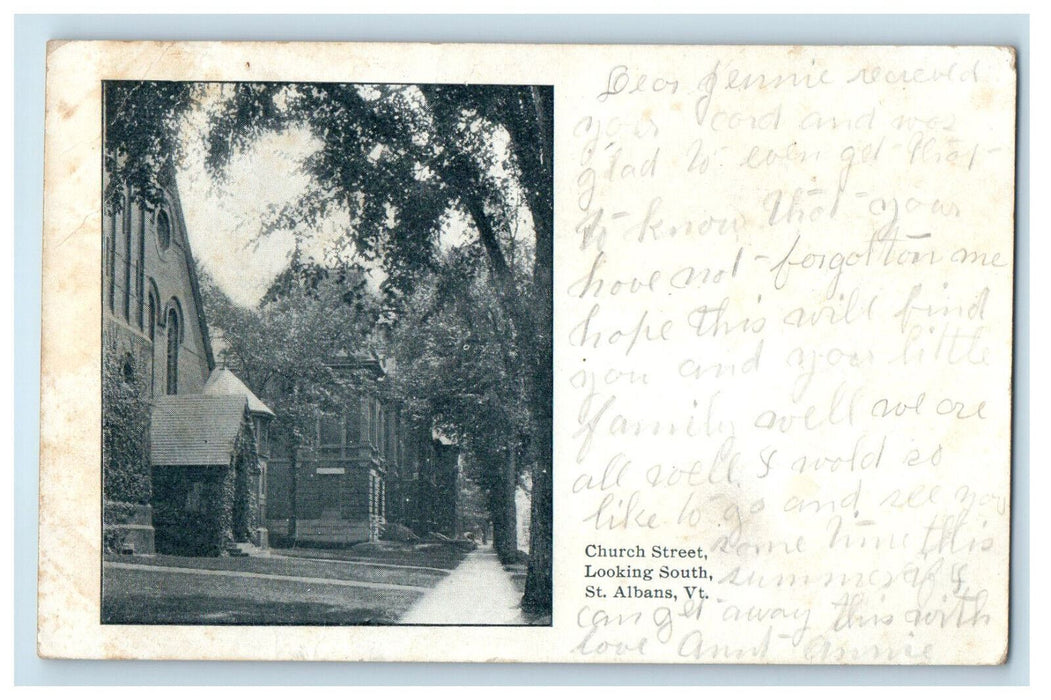 Dear Jennie recieved
your card and was
glad to even get that
to know that your
have not forgotton me
hope this will find
you and your little
family well we are
all well. I wold so
like to go and see you
some time this
summer if I
can get away this with
love Aunt Annie
Church Street,
Looking South,
St. Albans, Vt.